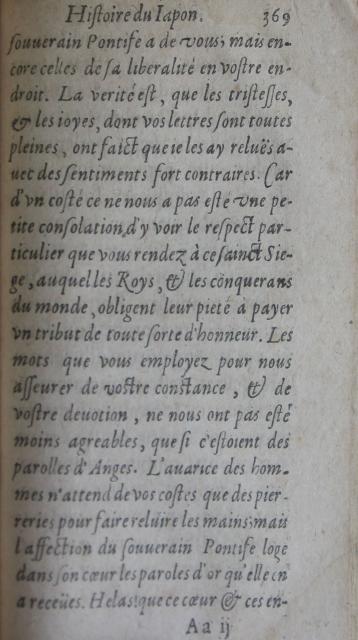 Histoire du Iapon. 369
souuerain Pontife a de vous; mais en-
core celles de sa liberalité en vostre en-
droit. La verité est, que les tristesses,
& les ioyes, dont vos lettres sont toutes
pleines, ont faict que ie les ay reluës a-
uec des sentiments fort contraires. Car
d'vn costé ce ne nous a pas esté vne pe-
tite consolation d'y voir le respect par-
ticulier que vous rendez à ce sainct Sie-
ge, auquel les Roys, & les conquerans
du monde, obligent leur pieté à payer
vn tribut de toute sorte d'honneur. Les
mots que vous employez pour nous
asseurer de vostre constance, & de
vostre deuotion, ne nous ont pas esté
moins agreables, que si c'estoient des
parolles d'Anges. L'auarice des hom-
mes n'attend de vos costes que des pier-
reries pour faire reluire les mains; mais
l'affection du souuerain Pontife loge
dans son cœur les paroles d'or qu'elle en
a receües. Helas! que ce cœur & ces en-
Aa ij